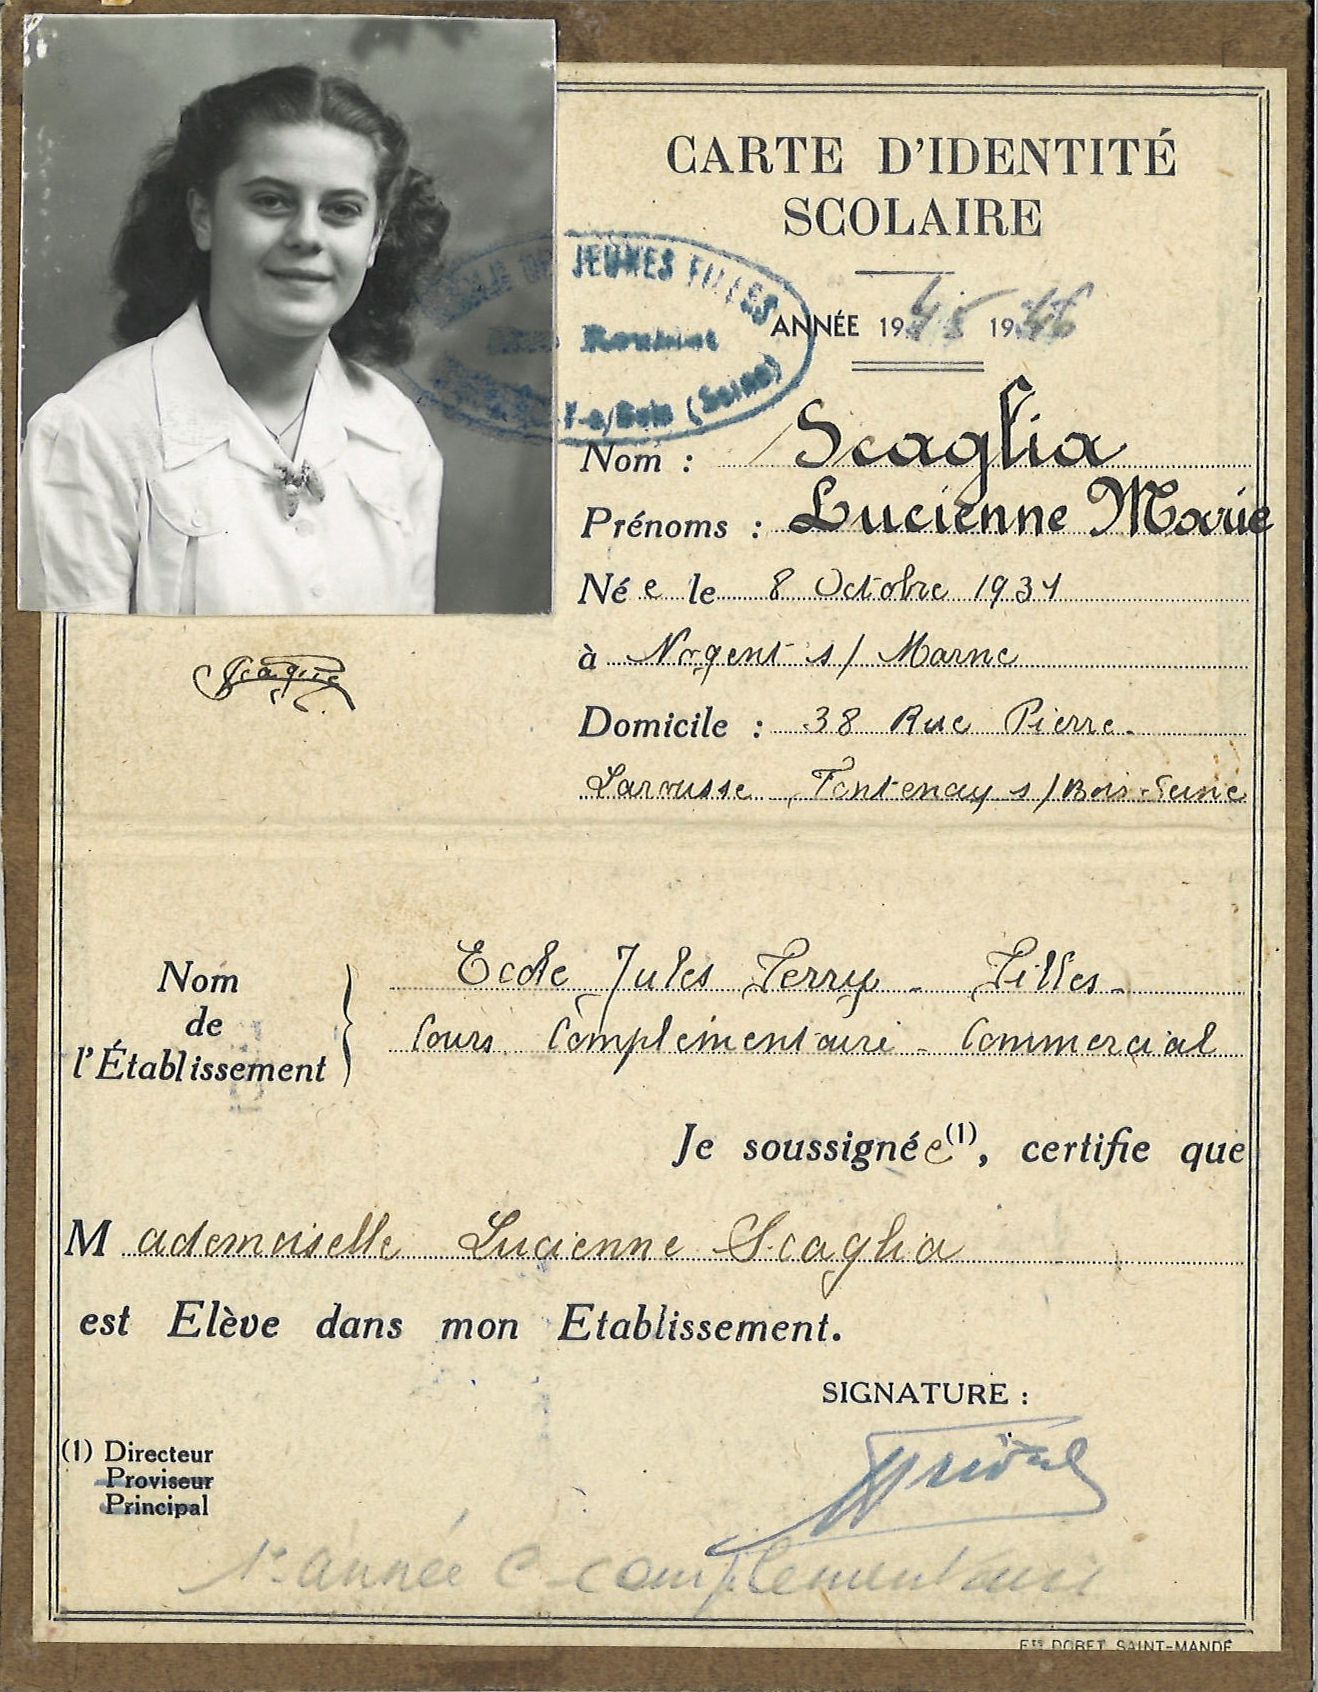 CARTE D'IDENTITÉ
SCOLAIRE
JEUNES FILLES
s/Bois (Seine)
ANNÉE 1945 1946
Nom : Scaglia
Prénoms : Lucienne Marie
Née le 8 Octobre 1931
à Nogent s/ Marne
Domicile : 38 Rue Pierre.
Larousse Fontenay s/Bois-Seine
Scaglia
Nom
de
l'Établissement
Ecole Jules Ferry - Filles -
Cours Complémentaire - Commercial
Je soussignée(1), certifie que
Mademoiselle Lucienne Scaglia
est Elève dans mon Etablissement.
SIGNATURE :
(1) Directeur
Proviseur
Principal
1e année C-complémentaire
Ets DOBET SAINT-MANDÉ